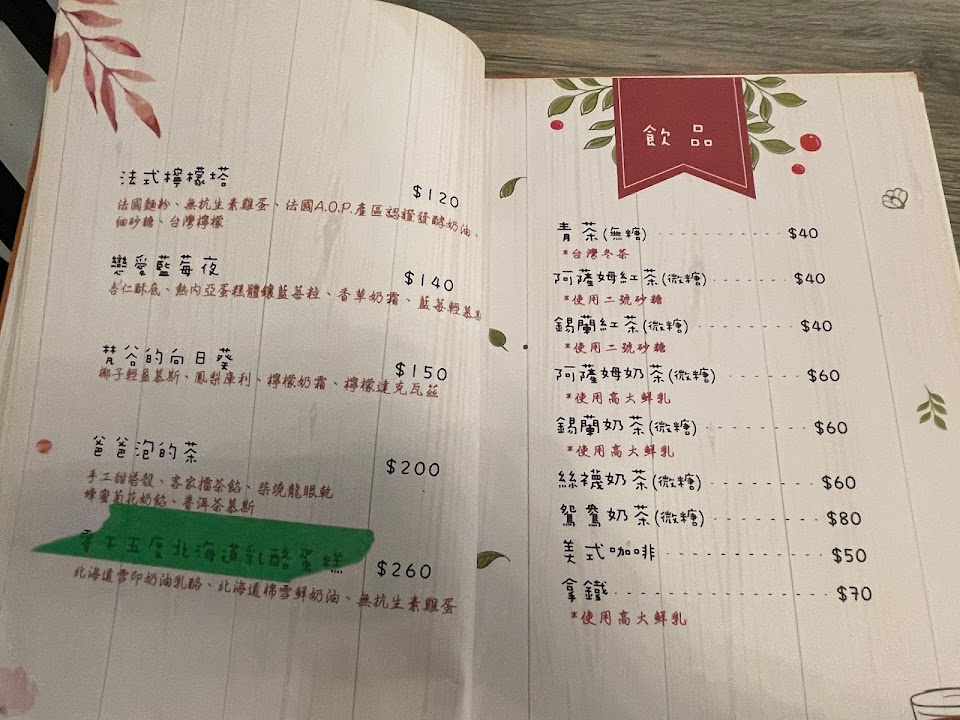 法式檸檬塔 $120
法國麵粉、無抗生素雞蛋、法國A.O.P.產區認證發酵奶油、
細砂糖、台灣檸檬
戀愛藍莓夜 $140
杏仁酥底、熱內亞蛋糕體鑲藍莓粒、香草奶霜、藍莓輕慕斯
梵谷的向日葵 $150
椰子輕盈慕斯、鳳梨庫利、檸檬奶霜、檸檬達克瓦茲
爸爸泡的茶 $200
手工甜塔殼、客家擂茶餡、柴燒龍眼乾
蜂蜜菊花奶餡、普洱茶慕斯
零下五度北海道乳酪蛋糕 $260
北海道雪印奶油乳酪、北海道棉雪鮮奶油、無抗生素雞蛋
飲品
青茶(無糖) $40
*台灣冬茶
阿薩姆紅茶(微糖) $40
*使用二號砂糖
錫蘭紅茶(微糖) $40
*使用二號砂糖
阿薩姆奶茶(微糖) $60
*使用高大鮮乳
錫蘭奶茶(微糖) $60
*使用高大鮮乳
絲襪奶茶(微糖) $60
鴛鴦奶茶(微糖) $80
美式咖啡 $50
拿鐵 $70
*使用高大鮮乳